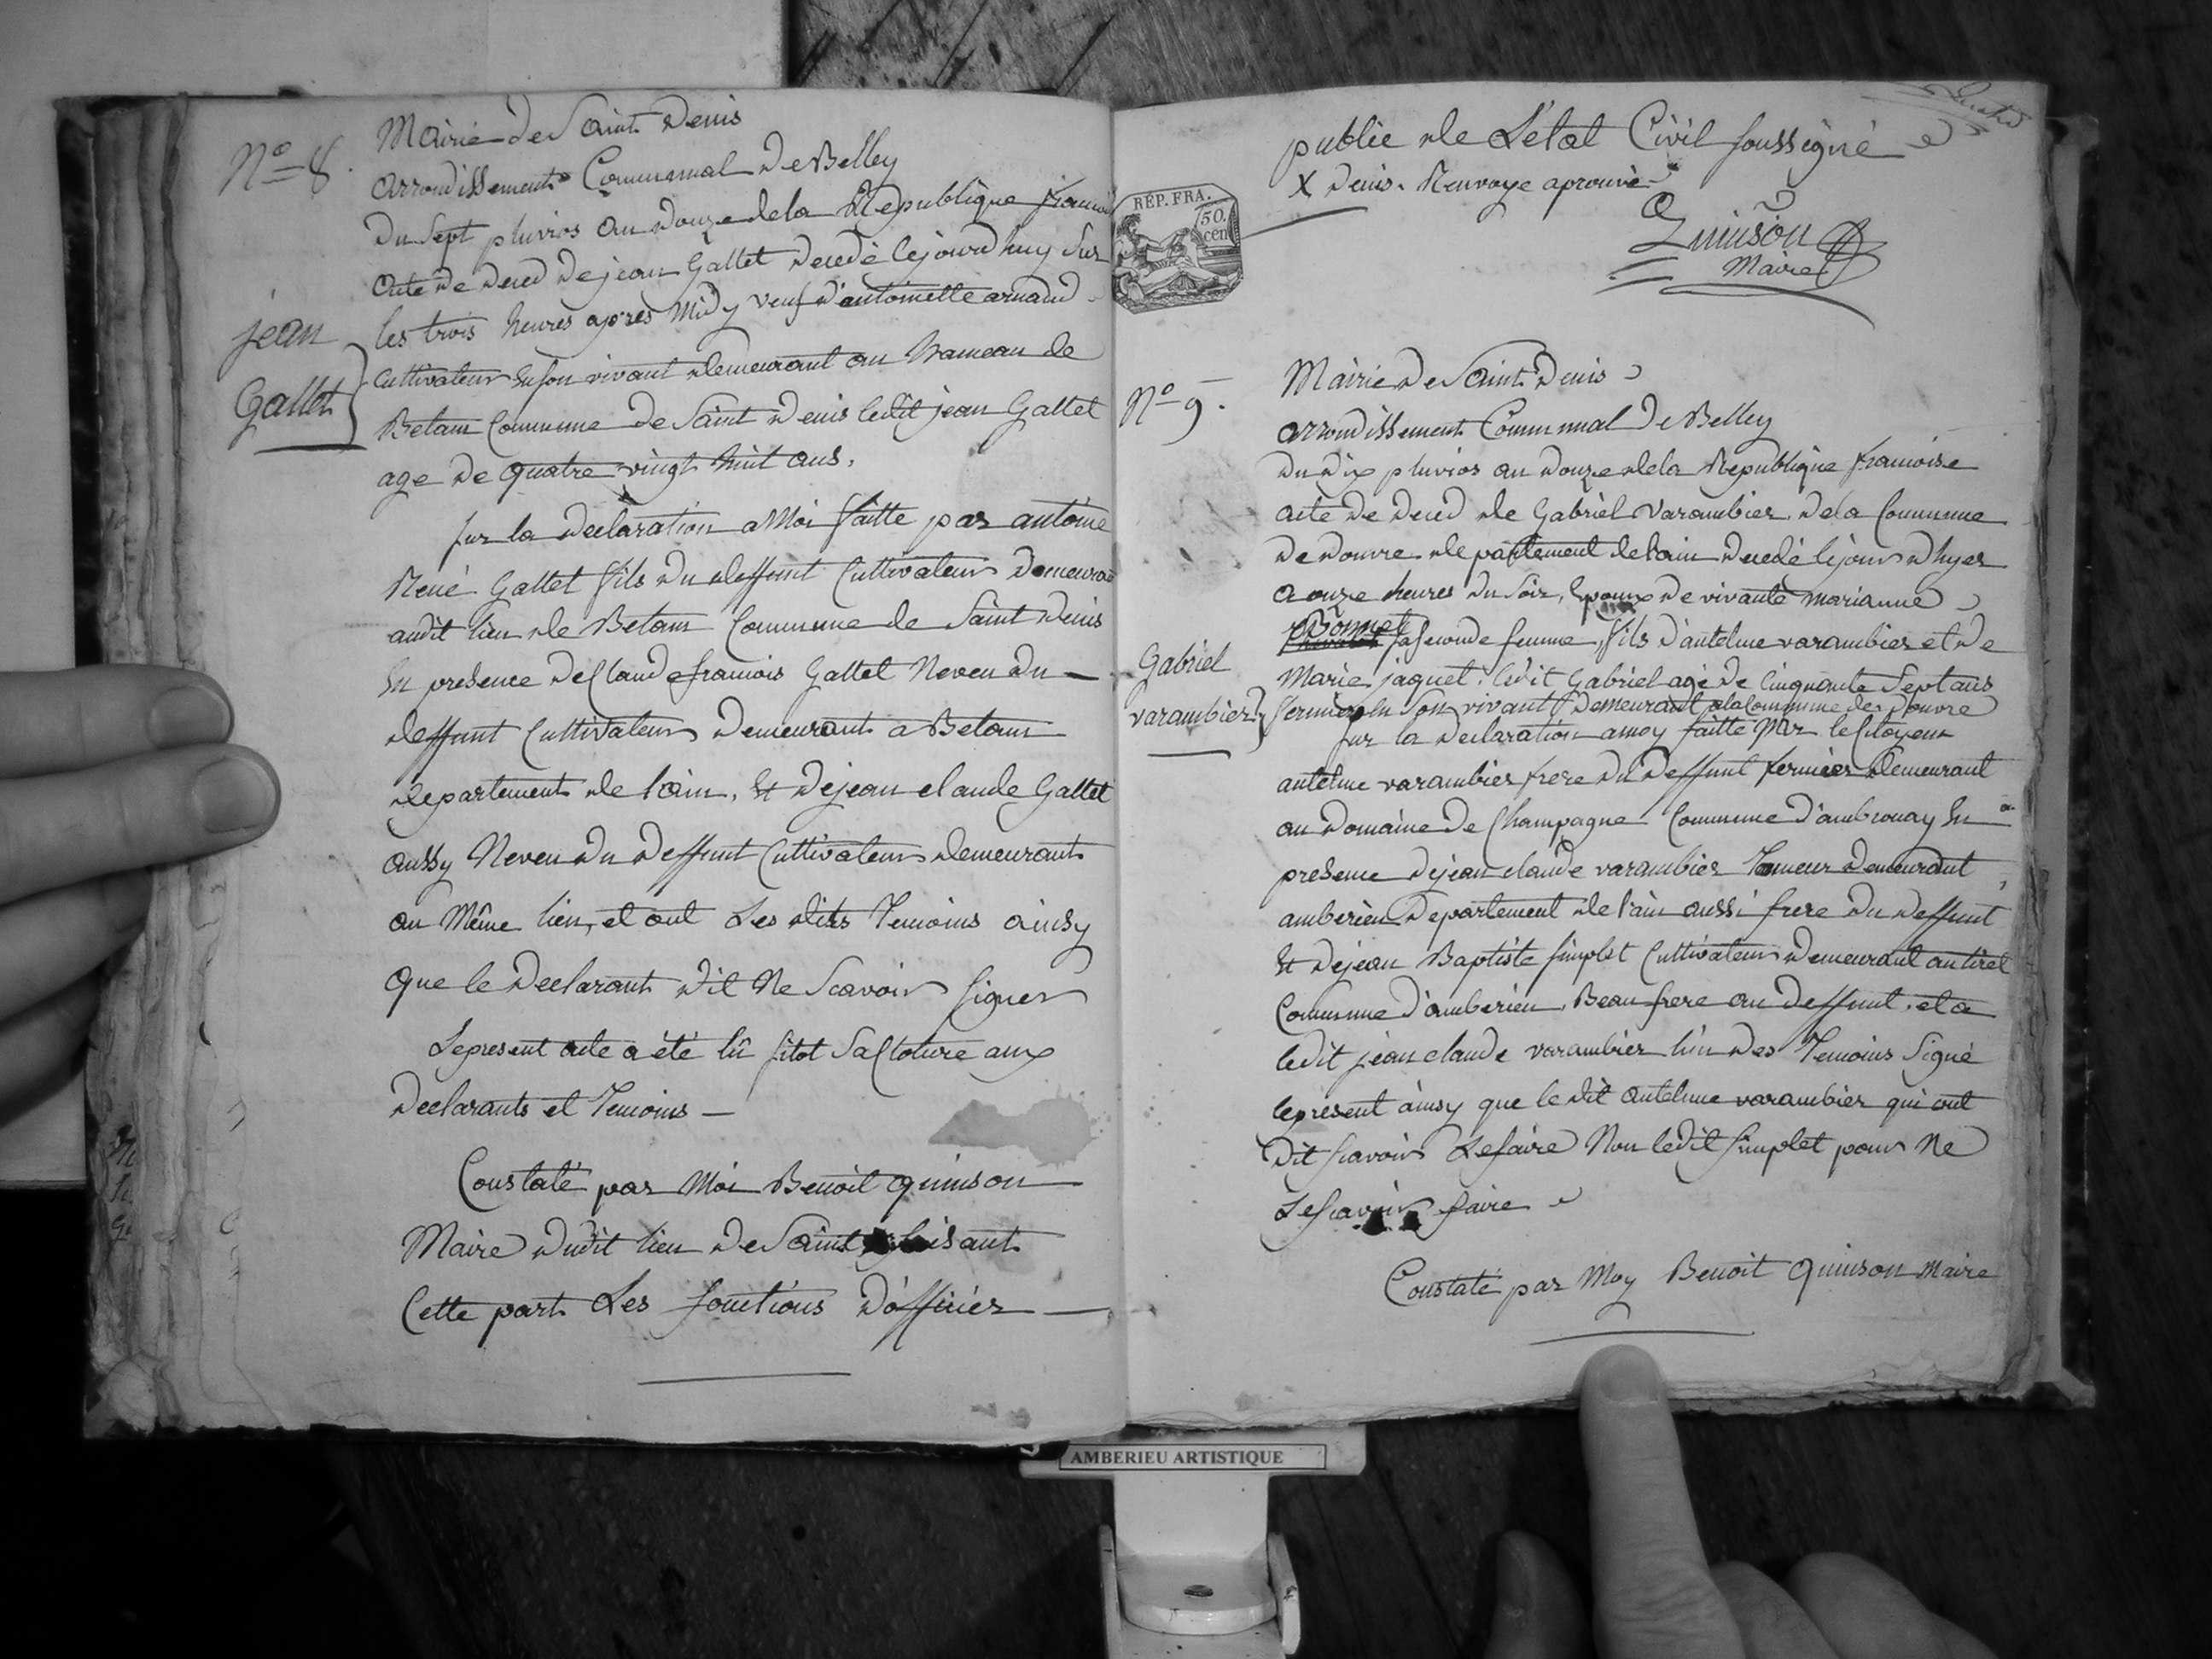 N° 8.
Mairie de Saint Denis
arrondissement Communal De Belley
du Sept pluvios an douze de la Republique francoi
acte de deced de jean Gallet decedé lejourdhuy Sur
les trois heures apres Midy veuf d'antoinette arnaud
jean
Gallet
Cultivateur En son vivant demeurant au hameau de
Betam Commune de Saint Denis ledit jean Gallet
age de quatre vingt huit ans.
sur la declaration a Moi faitte par antoine
René Gallet fils du deffunt Cultivateur Demeurant
audit lieu de Betam Commune de Saint Denis
En presence de Claude francois Gallet Neveu du
deffunt Cultivateur Demeurant a Betam
departement de l'ain, Et de jean claude Gallet
aussy Neveu du deffunt Cultivateur demeurant
au Même lieu, et ont Les dits Temoins ainsy
que le Declarant dit Ne Scavoir signer
Le present acte a été lû sitot Sa Cloture aux
Declarants et Temoins
Constaté par Moi Benoit quinson
Maire dudit lieu de Saint faisant
Cette part Les fonctions d'officier
publie de L'état Civil soussigné
X Denis. Renvoye aprouvé
RÉP. FRA.
50.
cen
Quinson
Maire
N° 9.
Mairie de Saint Denis
arrondissement Communal De Belley
du dix pluvios an douze de la Republique francoise
acte de deced de Gabriel Varambier de la Commune
de douvre departement de l'ain decedé le jour d'hyer
a onze heures du Soir, Epoux de vivante marianne
Bonnet
sa seconde femme, fils d'antelme varambier et de
Gabriel
varambier
Marie jaquet. ledit Gabriel agé de Cinquante Sept ans
fermier En Son vivant Demeurant a la Commune de Douvre
sur la declaration a moy faitte par le Citoyen
antelme varambier frere du Deffunt fermier demeurant
au domaine de Champagne Commune d'ambronay En
presence de jean claude varambier Tameur demeurant
amberieu Departement de l'ain aussi frere du deffunt
Et de jean Baptiste simplet Cultivateur demeurant au tiret
Commune d'amberieu, Beau frere au deffunt, et a
ledit jean claude varambier l'un des Temoins Signé
le present ainsy que le dit antelme varambier qui ont
dit scavoir Le faire Non ledit simplet pour Ne
Le scavoir faire
Constaté par Moy Benoit quinson maire
AMBERIEU ARTISTIQUE